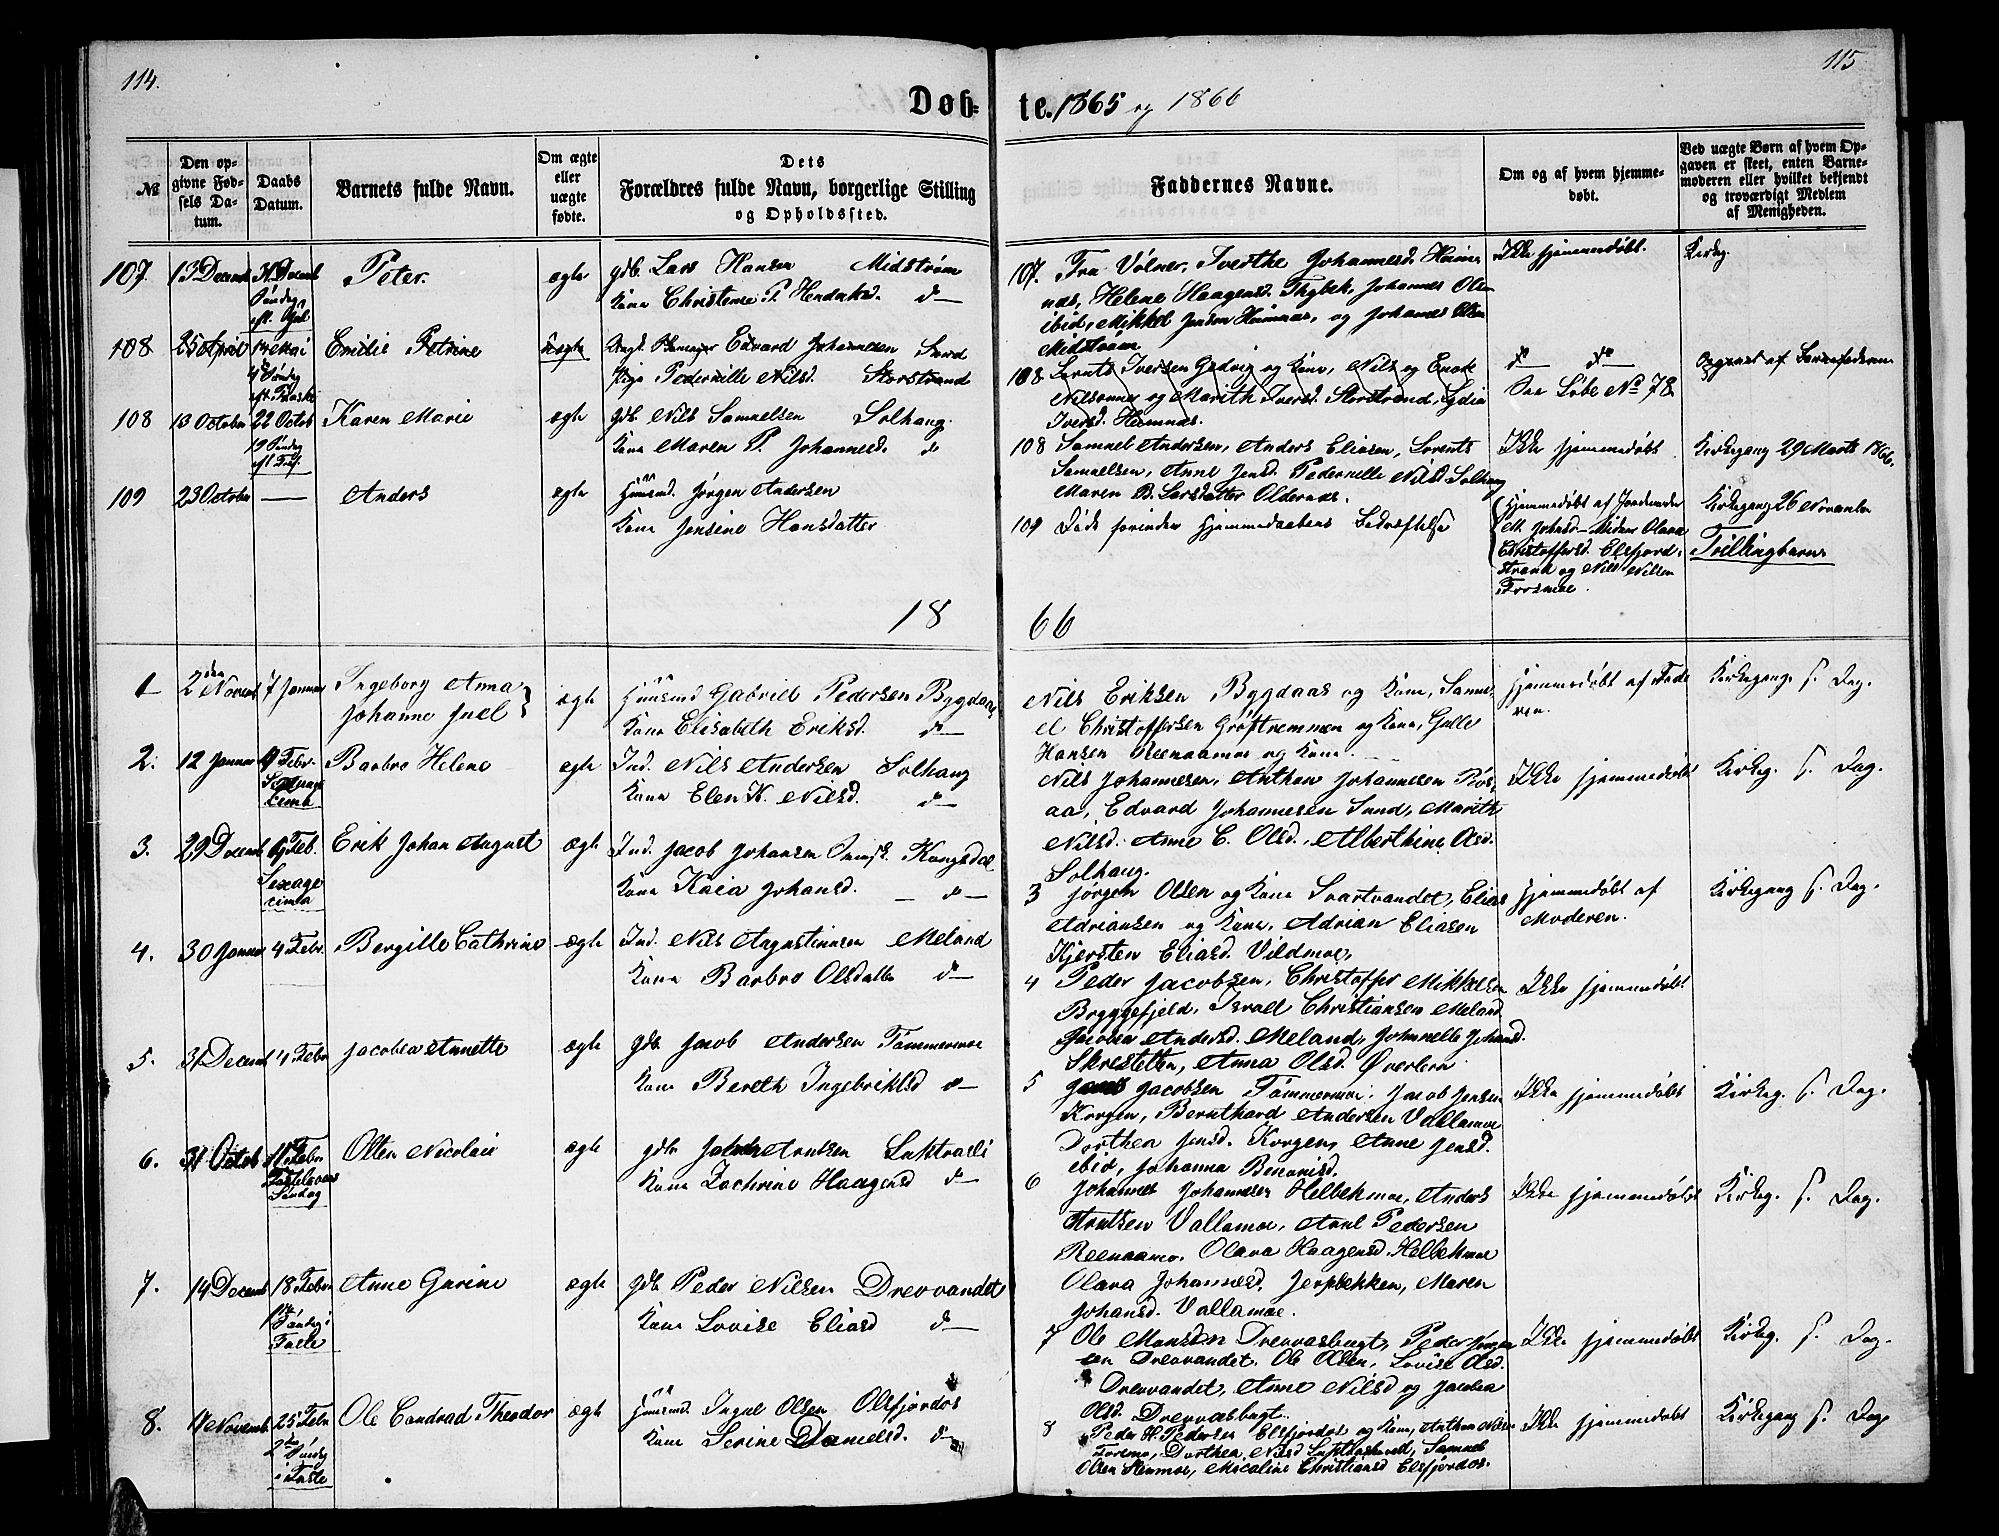 114.
115
Døb-
te. 1865 og 1866
№
Den op-
givne Fød-
sels Da-
tum.
Daabs
Datum.
Barnets fulde Navn.
Om ægte
eller
uægte
fødte.
Dets
Forældres fulde Navn, borgerlige Stilling
og Opholdssted.
Faddernes Navne.
Om og af hvem hjemme-
døbt.
Ved uægte Børn af hvem Op-
gaven er skeet, enten Barne-
moderen eller hvilket bekjendt
og troværdigt Medlem
af Menigheden.
107. 13 Decemb 31 Decemb Peter. ægte gdb. Lars Hansen Midstrøm
Søndag
eft. Jul
Kone Christense P. Hendriksd. d—
107. Fru Vølner, Iverthe Johannesd. Heim
nes, Helene Haagensd. Thybek, Johannes Olsen
ibid, Mikkel Jensen Heimnes, og Johannes Olsen
Midstrøm
Ikke hjemmedøbt.
Kirkeg.
108 25 April 14 Mai Emilie Petrine uægte Ungk. Edvard Johannesen Sund
4 Søndag
eft. Paaske
Pige Pedernille Nilsd. Storstrand
108 Lornts Iversen Gedvig og Kone, Nils og Enok
Nilsønner og Marith Iversd. Storstrand, Lydia
Iversd. Heimnes.
d— d—
Løbe No 78
Opgivet af Barnefaderen
108 13 October 22 Octob Karen Marie ægte gdb. Nils Samuelsen Solhaug.
19 Søndag
eft Tref.
Kone Maren P. Johannesd. d
108 Samuel Andersen, Anders Eliasen, Lorents
Samuelsen, Anne Jensd. Pedernille Nilsd Solhaug
Maren B. Larsdatter Oldernes.
Ikke hjemmedøbt
Kirkegang 29 Marts 1866.
109 23 October — Anders ægte Huusmd. Jørgen Andersen
Kone Jensine Hansdatter
109 Døde forinden Hjemmedaabens Bedræftelse
Hjemmedøbt af Jordemoder
M. Johnsd— Olava
Christoffersd. Elsfjord-
strand og Nils Nilsen
Forsmoe.
Kirkegang 26 November
Tvillingbarn
18
66
1 2den Novemb 7 Januar Ingeborg Anna
Johanne Juel ægte Huusmd Gabriel Pedersen Bygdaas
Kone Elisabeth Eriksd. d—
Nils Eriksen Bygdaas og Kone, Samu-
el Christoffersen Grøftremmen og Kone, Gulle
Hansen Reenaamoe og Kone.
Hjemmedøbt af Fade
ren.
Kirkegang s. Dag.
2. 12 Januar 9 Febr. Barbro Helene ægte Ind. Nils Andersen Solhaug
cima
Kone Elen K. Nilsd. d—
Nils Johannesen, Anthon Johannesen Røs-
aa, Edvard Johannesen Sund, Marith
Nilsd. Anne C. Olsd. Alberthine Olsd.
Solhaug.
Ikke hjemmedøbt
Kirkeg. s. Dag.
3. 29 Decemb Feb. Erik Johan August ægte Ind. Jacob Johansen Kongsdal
Sexage
cima
Kone Kaia Johansd. — d—
3 Jørgen Olsen og Kone Svartvandet, Elias
Adriansen og Kone, Adrian Eliasen
Kjersten Eliasd. Vildmoe,
Hjemmedøbt af
Moderen.
Kirkegang s. Dag.
4. 30 Januar 4 Febr. Bergille Cathrine ægte Ind. Nils Augustinusen Meland
Kone Barbro Olsdatter d—
4 Peder Jacobsen, Christoffer Mikkelsen
Bryggefjeld, Israel Christiansen Meland
Jacobea Andersd. Meland, Johnelle Johansd.
Skresletten, Anna Olsd. Øverlein
Ikke hjemmedøbt
5. 31 Decemb 4 Febr Jacobea Annette ægte gdb Jacob Andersen Tømmermoe
Kone Bereth Ingebrikisd d—
5 Jacobsen Tømmermoe, Jacob Jensen
Korgen, Bernthard Andersen Vallamoe
Dorthea Jensd. Korgen, Anne Jensd.
ibid, Johanna Benonisd.
Ikke hjemmedøbt
Kirkeg. s. Dag.
6. 31 Octob 11 Febr Olten Nicolai ægte gdbr Arntsen Luktvasli
Fastelavns
Søndag
Kone Zachrine Haagensd d—
6 Johannes Johannesen Helbekmoe, Anders
Arntsen Vallamoe, Arnt Pedersen
Reenaamo. Olava Haagensd. Helbekmoe
Olava Johannesd. Jerpbekken, Maren
Johansd. Vallamoe.
Ikke hjemmedøbt
Kirkeg. s. Dag.
7. 14 Decemb 18 Febr Anne Gurine ægte gdb. Peder Nilsen Drevvandet
1ste
Søndag i
Faste
Kone Lovise Eliasd d—
7 Ole Monsen Drevvasbugt, Peder Jørgen
sen Drevvandet. Ole Olsen, Lovise Olsd.
Drevvandet, Anne Nilsd og Jacobea
Olsd. Drevvasbugt.
Ikke hjemmedøbt
Kirkeg. s. Dag
8. 11 Novemb 25 Febr Ole Condrad Theodor ægte Huusmd. Ingel Olsen Elsfjordos
2den Søndag
i Faste
Kone Serine Danielsd. d—
8 Peder H. Pedersen Elsfjordos og Kone, Anthon Nilsen
Forsmo, Dorthea Nilsd Luktvashoved, Samuel
Olsen Stenmoe, Micaline Christiansd Elsfjordos.
Ikke hjemmedøbt
Kirkegang s. Dag